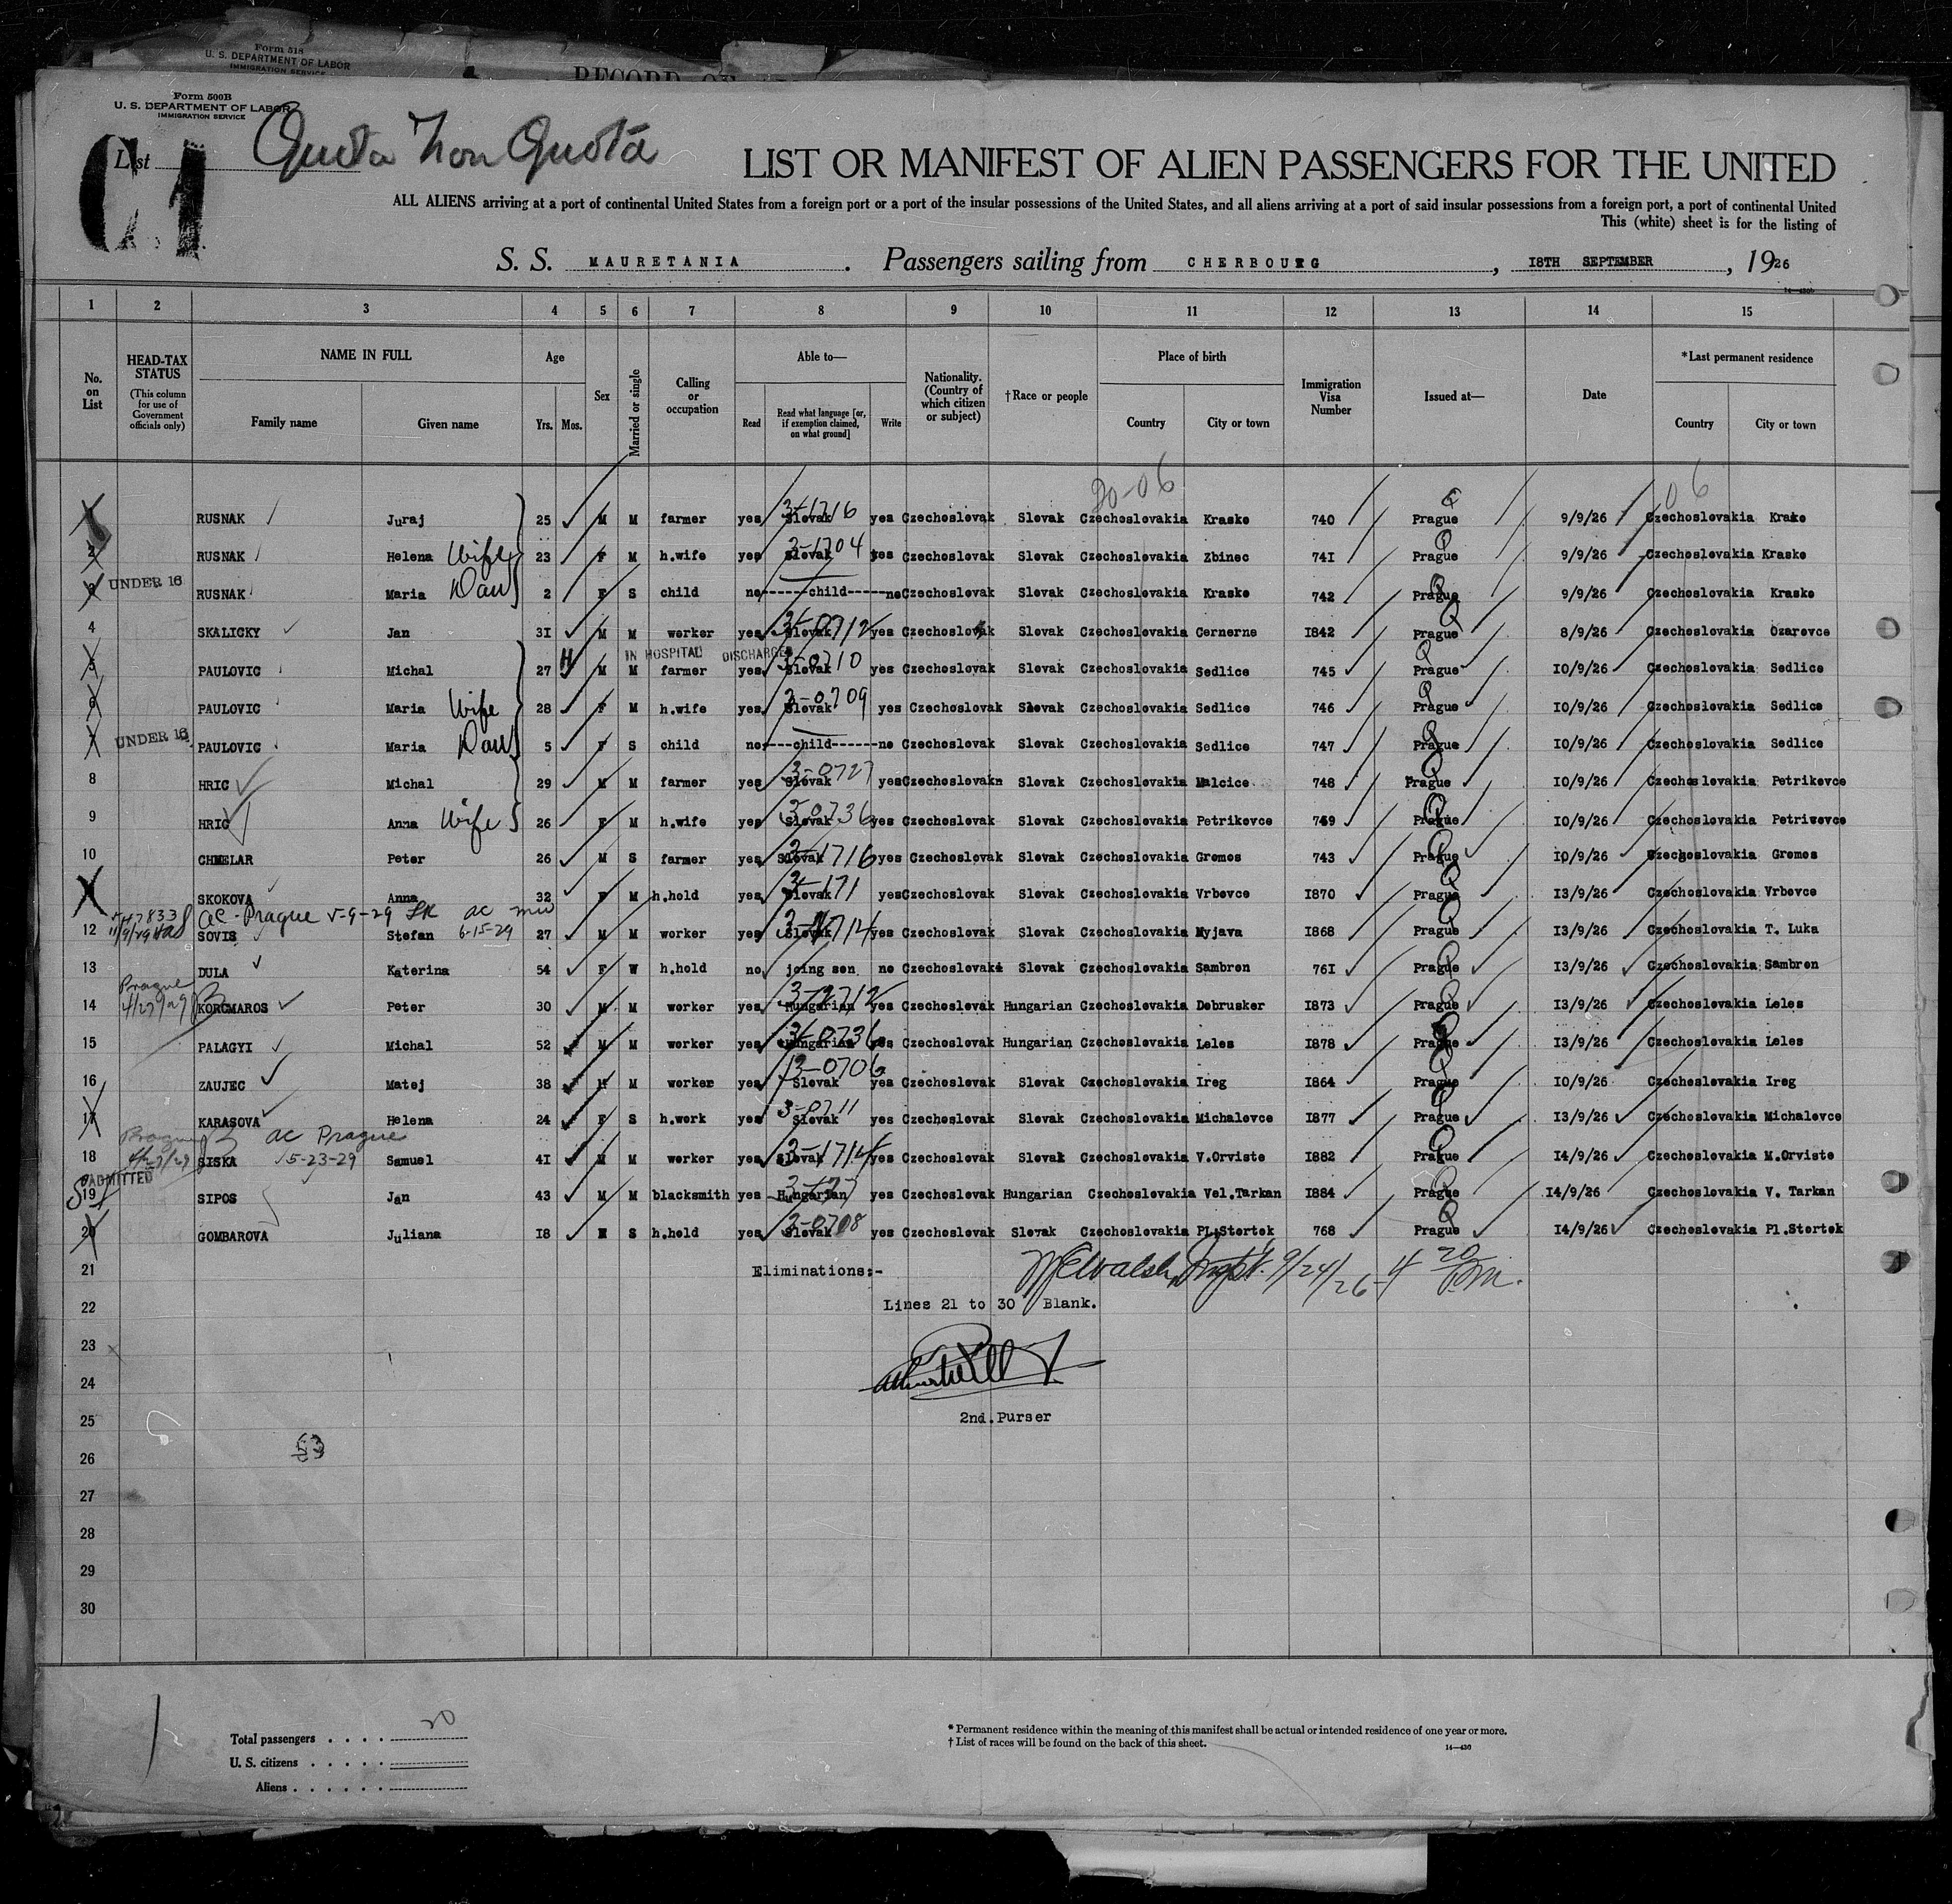 Form 518
U. S. DEPARTMENT OF LABOR
IMMIGRATION SERVICE
RECORD OF
Form 500B
U. S. DEPARTMENT OF LABOR
IMMIGRATION SERVICE
List
C1
Quota Non Quota
LIST OR MANIFEST OF ALIEN PASSENGERS FOR THE UNITED
ALL ALIENS arriving at a port of continental United States from a foreign port or a port of the insular possessions of the United States, and all aliens arriving at a port of said insular possessions from a foreign port, a port of continental United
This (white) sheet is for the listing of
S. S. MAURETANIA. Passengers sailing from CHERBOURG, 18TH SEPTEMBER, 1926
14—430
1 2 3 4 5 6 7 8 9 10 11 12 13 14 15
No. on List
HEAD-TAX STATUS
(This column for use of Government officials only)
NAME IN FULL
Family name Given name
Age
Yrs. Mos.
Sex
Married or single
Calling or occupation
Able to—
Read
Read what language [or, if exemption claimed, on what ground]
Write
Nationality. (Country of which citizen or subject)
†Race or people
Place of birth
Country City or town
Immigration Visa Number
Issued at—
Date
*Last permanent residence
Country City or town
20-06 06
RUSNAK Juraj 25 M M farmer yes Slovak 3-1716 yes Czechoslovak Slovak Czechoslovakia Kraske 740 Prague 9/9/26 Czechoslovakia Krake
2 RUSNAK Helena Wife 23 F M h.wife yes Slovak 3-1704 yes Czechoslovak Slovak Czechoslovakia Zbinec 741 Prague 9/9/26 Czechoslovakia Kraske
3 UNDER 16 RUSNAK Maria Dau 2 F S child no------child-----no Czechoslovak Slovak Czechoslovakia Kraske 742 Prague 9/9/26 Czechoslovakia Kraske
4 SKALICKY Jan 31 M M worker yes Slovak 3-0712 yes Czechoslovak Slovak Czechoslovakia Cernerne 1842 Prague 8/9/26 Czechoslovakia Ozarovce
IN HOSPITAL DISCHARGED
5 PAULOVIC Michal 27 H M M farmer yes Slovak 3-0710 yes Czechoslovak Slovak Czechoslovakia Sedlice 745 Prague 10/9/26 Czechoslovakia Sedlice
6 PAULOVIC Maria Wife 28 F M h.wife yes Slovak 3-0709 yes Czechoslovak Slovak Czechoslovakia Sedlice 746 Prague 10/9/26 Czechoslovakia Sedlice
7 UNDER 16 PAULOVIC Maria Dau 5 F S child no----child------no Czechoslovak Slovak Czechoslovakia Sedlice 747 Prague 10/9/26 Czechoslovakia Sedlice
8 HRIC Michal 29 M M farmer yes Slovak 3-0727 yes Czechoslovakn Slovak Czechoslovakia Malcice 748 Prague 10/9/26 Czechoslovakia Petrikovce
9 HRIC Anna Wife 26 F M h.wife yes Slovak 3-0736 yes Czechoslovak Slovak Czechoslovakia Petrikovce 749 Prague 10/9/26 Czechoslovakia Petrivovce
10 CHMELAR Peter 26 M S farmer yes Slovak 3-1716 yes Czechoslovak Slovak Czechoslovakia Gremos 743 Prague 10/9/26 Czechoslovakia Gremos
SKOKOVA Anna 32 F M h.hold yes Slovak 3-171 yes Czechoslovak Slovak Czechoslovakia Vrbovce 1870 Prague 13/9/26 Czechoslovakia Vrbovce
ac - Prague 5-9-29 ac 6-15-29
12 SOVIS Stefan 27 M M worker yes Slovak yes Czechoslovak Slovak Czechoslovakia Myjava 1868 Prague 13/9/26 Czechoslovakia T. Luka
13 DULA Katerina 54 F W h.hold no joing son no Czechoslovak Slovak Czechoslovakia Sambron 761 Prague 13/9/26 Czechoslovakia Sambron
Prague 4/27/29
14 KORCMAROS Peter 30 M M worker yes Hungarian yes Czechoslovak Hungarian Czechoslovakia Dobrusker 1873 Prague 13/9/26 Czechoslovakia Leles
15 PALAGYI Michal 52 M M worker yes Hungarian 3-0736 yes Czechoslovak Hungarian Czechoslovakia Leles 1878 Prague 13/9/26 Czechoslovakia Leles
16 ZAUJEC Matej 38 M M worker yes Slovak 3-0706 yes Czechoslovak Slovak Czechoslovakia Ireg 1864 Prague 10/9/26 Czechoslovakia Ireg
17 KARASOVA Helena 24 F S h.work yes Slovak 3-0711 yes Czechoslovak Slovak Czechoslovakia Michalovce 1877 Prague 13/9/26 Czechoslovakia Michalovce
Prague ac Prague 5-23-29
18 SISKA Samuel 41 M M worker yes Slovak 3-1714 yes Czechoslovak Slovak Czechoslovakia V.Orviste 1882 Prague 14/9/26 Czechoslovakia M.Orviste
ADMITTED
19 SIPOS Jan 43 M M blacksmith yes Hungarian yes Czechoslovak Hungarian Czechoslovakia Vel.Tarkan 1884 Prague 14/9/26 Czechoslovakia V. Tarkan
20 GOMBAROVA Juliana 18 S h.hold yes Slovak 3-0708 yes Czechoslovak Slovak Czechoslovakia Pl.Stortek 768 Prague 14/9/26 Czechoslovakia Pl.Stortek
21 Eliminations:- Walsh Inspt. 9/24/26 - 4 20 P.m.
22 Lines 21 to 30 Blank.
23
24
25 2nd. Purser
26 53
27
28
29
30
Total passengers . . . . 20
U. S. citizens . . . . .
Aliens . . . . . .
* Permanent residence within the meaning of this manifest shall be actual or intended residence of one year or more.
† List of races will be found on the back of this sheet.
14—430